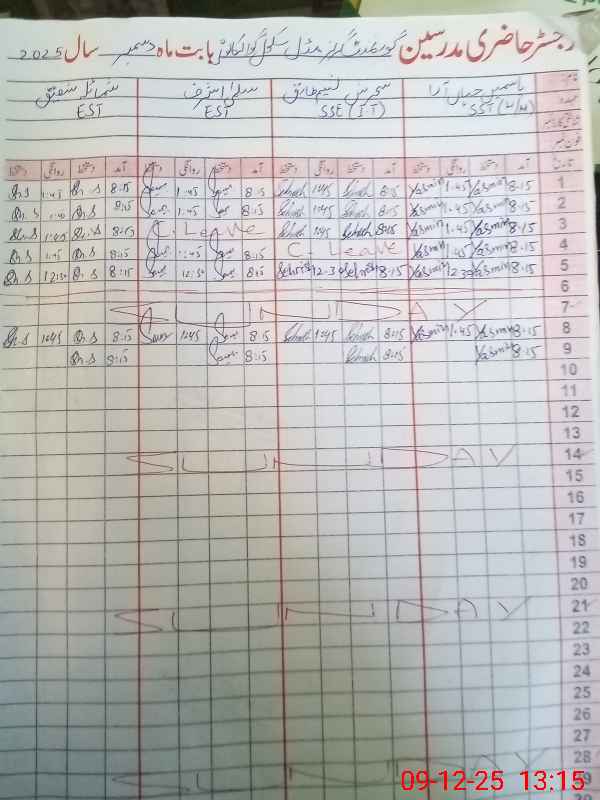 رجسٹر حاضری مدرسین گورنمنٹ گرلز مڈل سکول بابت ماہ دسمبر سال 2025
نام یاسمین جہاں آرا سحرش نسیم طارق سلمیٰ اشرف شمائلہ شفیق
عہدہ SST SSE (IT) EST EST
تاریخ آمد دستخط روانگی دستخط آمد دستخط روانگی دستخط آمد دستخط روانگی دستخط آمد دستخط روانگی دستخط
1 8:15 Yasmin 1:45 Yasmin 8:15 Sehrish 1:45 Sehrish 8:15 1:45 8:15 Sh.S 1:45 Sh.S
2 8:15 Yasmin 1:45 Yasmin 8:15 Sehrish 1:45 Sehrish 8:15 1:45 8:15 Sh.S 1:45 Sh.S
3 8:15 Yasmin 1:45 Yasmin 8:15 Sehrish 1:45 Sehrish C. Leave 8:15 Sh.S 1:45 Sh.S
4 8:15 Yasmin 1:45 Yasmin C. Leave 8:15 1:45 8:15 Sh.S 1:45 Sh.S
5 8:15 Yasmin 12:30 Yasmin 8:15 Sehrish 12:30 Sehrish 8:15 12:30 8:15 Sh.S 12:30 Sh.S
6
7 SUNDAY
8 8:15 Yasmin 1:45 Yasmin 8:15 Sehrish 1:45 Sehrish 8:15 1:45 8:15 Sh.S 1:45 Sh.S
9 8:15 Yasmin 8:15 Sehrish 8:15 8:15 Sh.S
10
11
12
13
14 SUNDAY
15
16
17
18
19
20
21 SUNDAY
22
23
24
25
26
27
28 SUNDAY
09-12-25 13:15